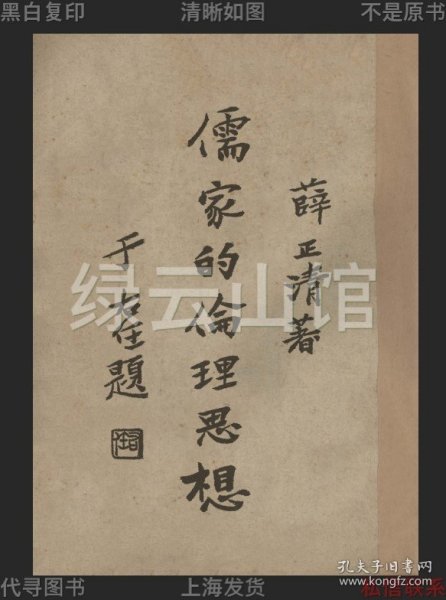 黑白复印
清晰如图
不是原书
薛正清著
儒家的倫理思想
于右任題
绿云山馆
代寻图书
上海发货
私信联系
孔夫子旧书网
www.kongfz.com